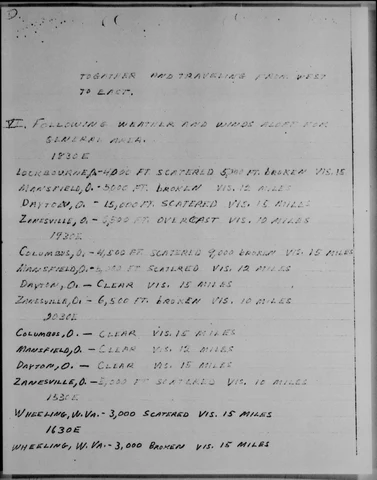 TOGETHER AND TRAVELING FROM WEST
TO EAST.
VI. FOLLOWING WEATHER AND WINDS ALOFT FOR
GENERAL AREA.
1830E
LOCKBOURNE, O.-4000 FT SCATERED FT. BROKEN VIS. 15
MANSFIELD, O. - 5000 FT. BROKEN VIS. 12 MILES
DAYTON, O. - 15,000 FT. SCATERED VIS. 15 MILES
ZANESVILLE, O. - 6,500 FT. OVERCAST VIS. 10 MILES
1930E
COLUMBUS, O. - 4,500 FT. SCATERED 9,000 BROKEN VIS. 15 MILES
MANSFIELD, O. - FT. SCATERED VIS. 12 MILES
DAYTON, O. - CLEAR VIS. 15 MILES
ZANESVILLE, O. - 6,500 FT. BROKEN VIS. 10 MILES
2030E
COLUMBUS, O. - CLEAR VIS. 15 MILES
MANSFIELD, O. - CLEAR VIS. 12 MILES
DAYTON, O. - CLEAR VIS. 15 MILES
ZANESVILLE, O. - FT SCATERED VIS. 10 MILES
1530E
WHEELING, W. VA. - 3,000 SCATERED VIS. 15 MILES
1630E
WHEELING, W. VA. - 3,000 BROKEN VIS. 15 MILES